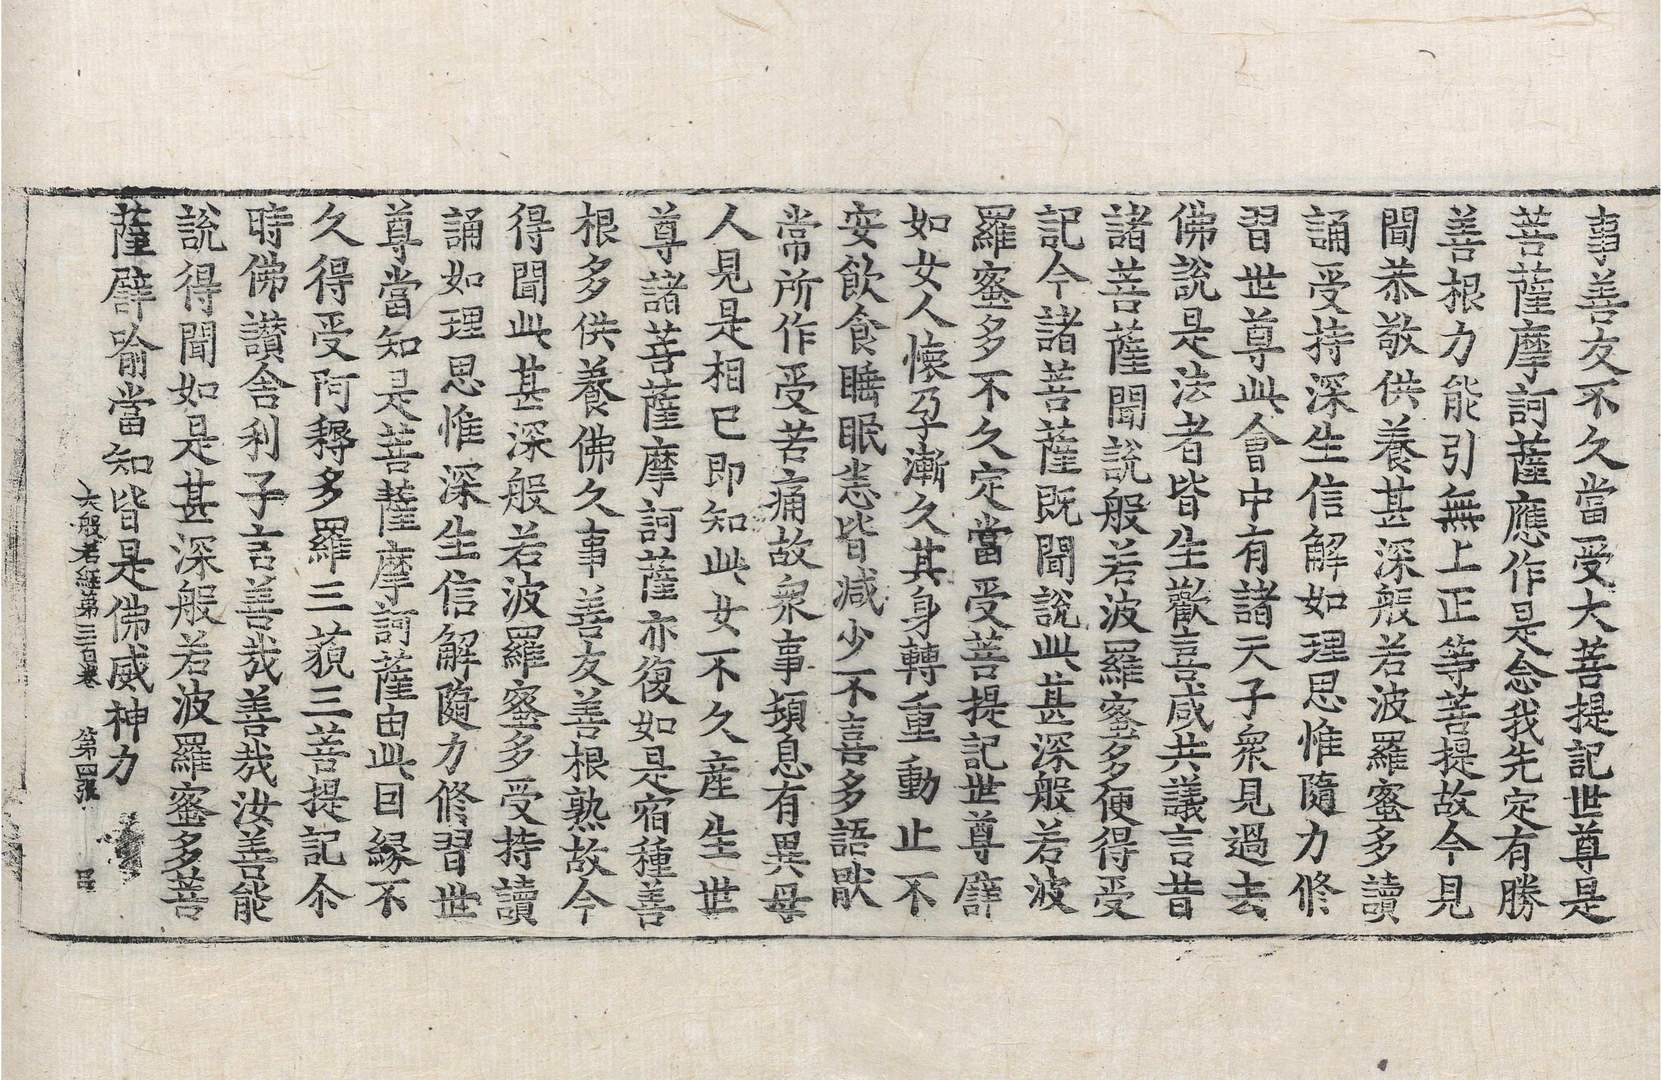 事善友不久當受大菩提記世尊是
菩薩摩訶薩應作是念我先定有勝
善根力能引無上正等菩提故今見
聞恭敬供養甚深般若波羅蜜多讀
誦受持深生信解如理思惟隨力修
習世尊此會中有諸天子衆見過去
佛說是法者皆生歡喜咸共議言昔
諸菩薩聞說般若波羅蜜多便得受
記今諸菩薩既聞說此甚深般若波
羅蜜多不久定當受菩提記世尊譬
如女人懷孕漸久其身轉重動止不
安飲食睡眠悉皆减少不喜多語猒
常所作受苦痛故衆事頓息有異母
人見是相已即知此女不久產生世
尊諸菩薩摩訶薩亦復如是宿種善
根多供養佛久事善友善根熟故今
得聞此甚深般若波羅蜜多受持讀
誦如理思惟深生信解隨力修習世
尊當知是菩薩摩訶薩由此因緣不
久得受阿耨多羅三藐三菩提記尒
時佛讃舍利子言善哉善哉汝善能
說得聞如是甚深般若波羅蜜多菩
薩譬喻當知皆是佛威神力
大般若經第三百卷 第四張 呂